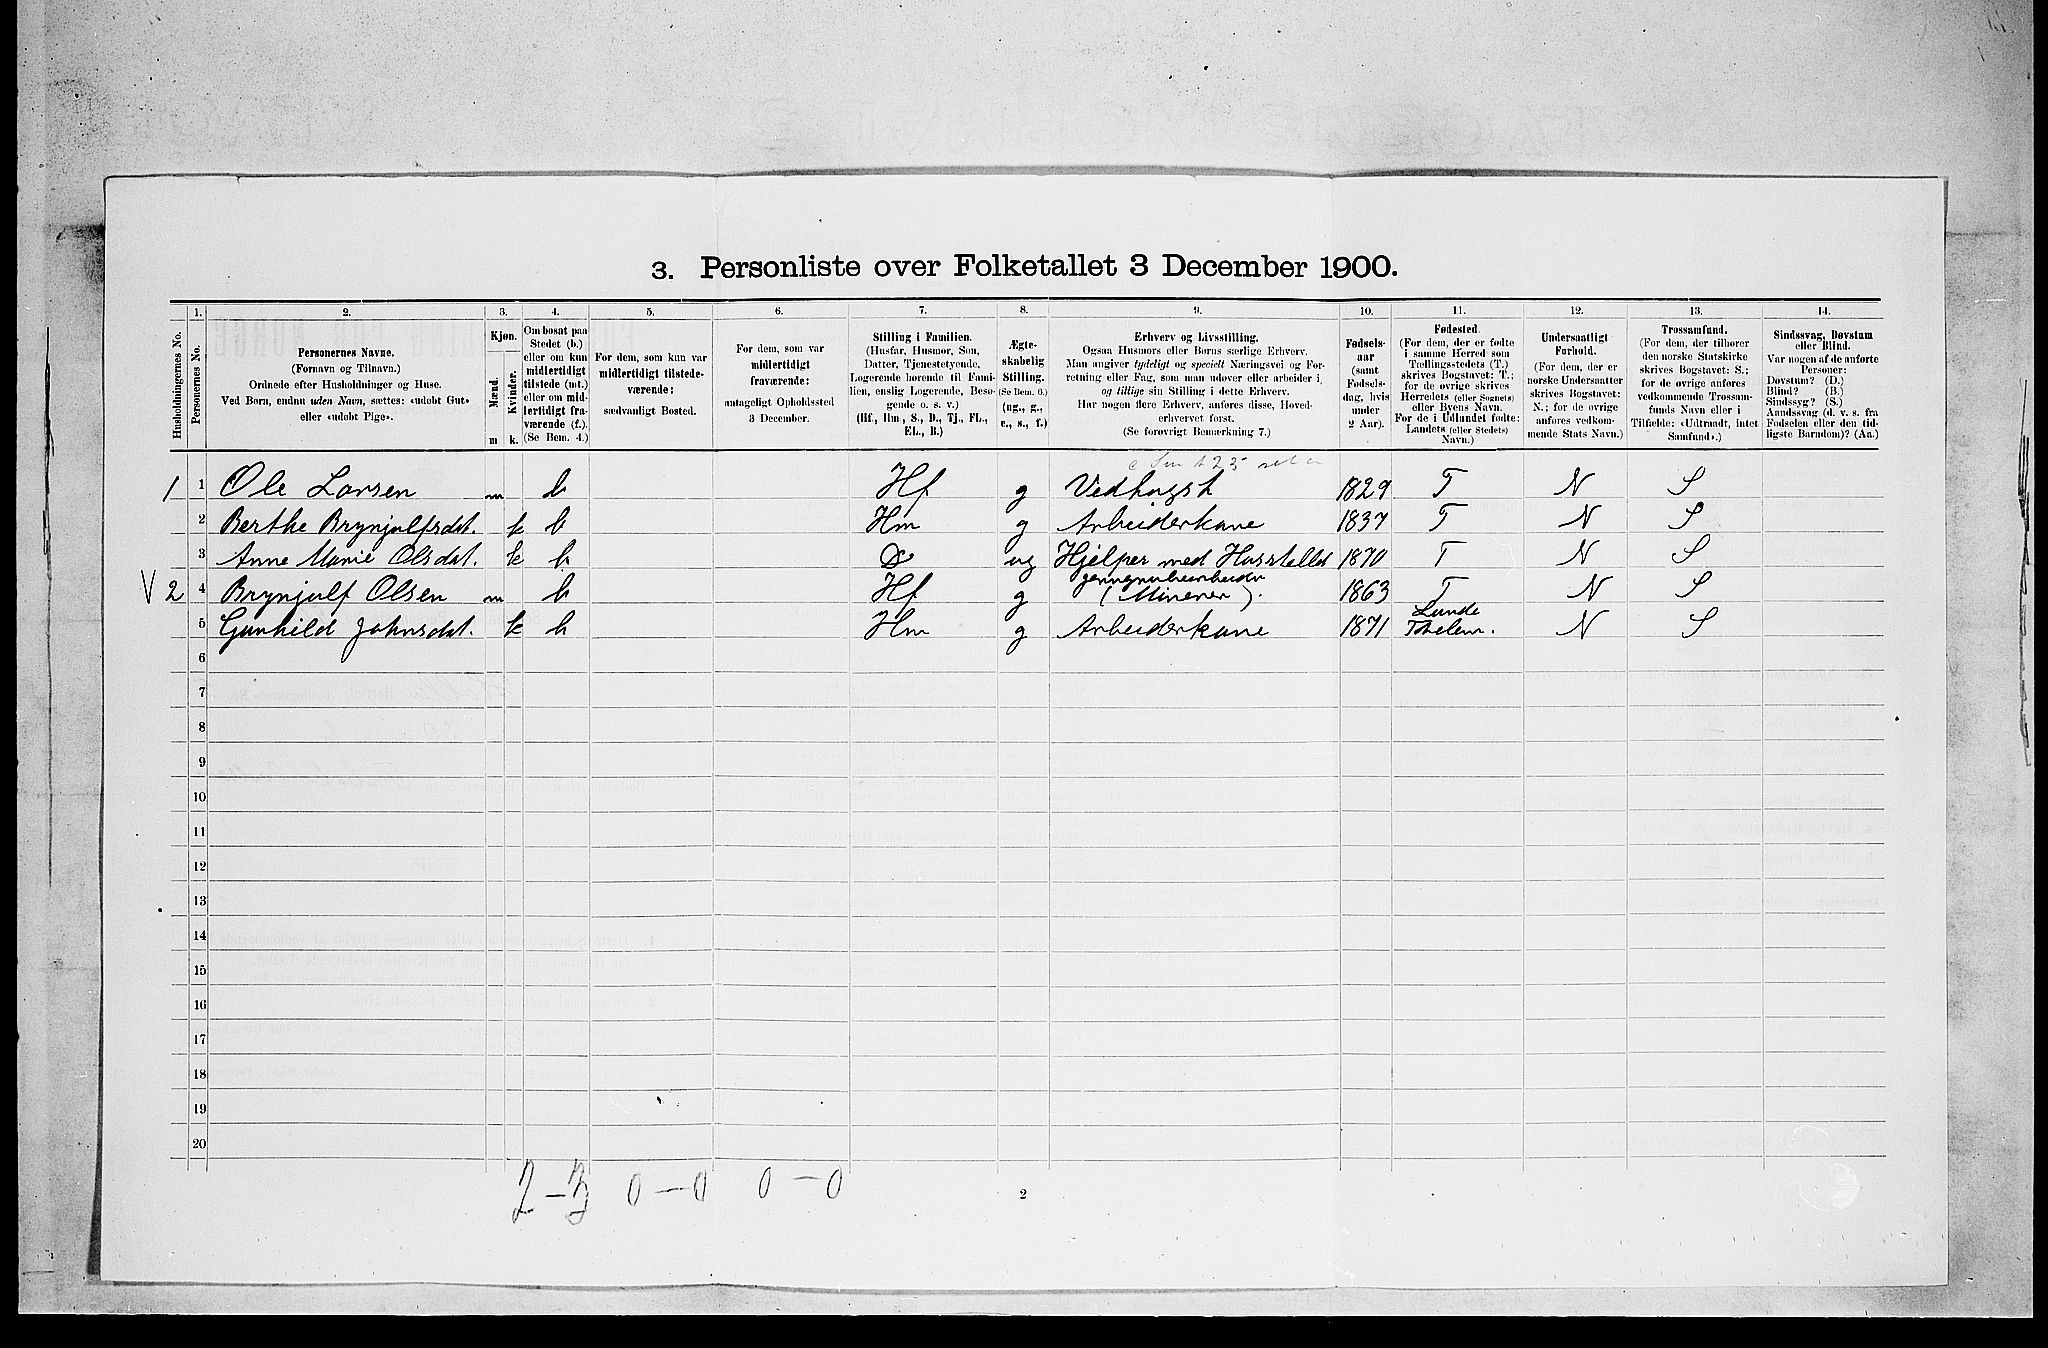 3. Personliste over Folketallet 3 December 1900.
Husholdningernes No.
1.
Personernes No.
2.
Personernes Navne.
(Fornavn og Tilnavn.)
Ordnede efter Husholdninger og Huse.
Ved Børn, endnu uden Navn, sættes: «udøbt Gut»
eller «udøbt Pige».
3.
Kjøn.
Mænd.
Kvinder.
m k.
4.
Om bosat paa
Stedet (b.)
eller om kun
midlertidigt
tilstede (mt.)
eller om mid-
lertidigt fra-
værende (f.).
(Se Bem. 4.)
5.
For dem, som kun var
midlertidigt tilstede-
værende:
sædvanligt Bosted.
6.
For dem, som var
midlertidigt
fraværende:
antageligt Opholdssted
3 December.
7.
Stilling i Familien.
(Husfar, Husmor, Søn,
Datter, Tjenestetyende,
Logerende hørende til Fami-
lien, enslig Logerende, Besø-
gende o. s. v.)
(Hf., Hm., S., D., Tj., FL.,
EL., B.)
8.
Ægte-
skabelig
Stilling.
(Se Bem. 6.)
(ug., g.,
e., s., f.)
9.
Erhverv og Livsstilling.
Ogsaa Husmors eller Børns særlige Erhverv.
Man angiver tydeligt og specielt Næringsvei og For-
retning eller Fag, som man udøver eller arbeider i,
og tillige sin Stilling i dette Erhverv.
Har nogen flere Erhverv, anføres disse, Hoved-
erhvervet først.
(Se forøvrigt Bemærkning 7.)
10.
Fødsels-
aar
(samt
Fødsels-
dag, hvis
under
2 Aar).
11.
Fødested.
(For dem, der er fødte
i samme Herred som
Tællingsstedets (T.)
skrives Bogstavet: T.;
for de øvrige skrives
Herredets (eller Sognets)
eller Byens Navn.
For de i Udlandet fødte:
Landets (eller Stedets)
Navn.)
12.
Undersaatligt
Forhold.
(For dem, der er
norske Undersaatter
skrives Bogstavet:
N.; for de øvrige
anføres vedkom-
mende Stats Navn.)
13.
Trossamfund.
(For dem, der tilhører
den norske Statskirke
skrives Bogstavet: S.;
for de øvrige anføres
vedkommende Trossam-
funds Navn eller i
Tilfælde: «Udtraadt, intet
Samfund».)
14.
Sindssvag, Døvstum
eller Blind.
Var nogen af de anførte
Personer:
Døvstum? (D.)
Blind? (B.)
Sindssyg? (S.)
Aandssvag (d. v. s. fra
Fødselen eller den tid-
ligste Barndom)? (Aa.)
1 1 Ole Larsen m b Hf g Vedhugst 1829 T N S
2 Berthe Brynjulfsdat. k b Hm g Arbeiderkone 1837 T N S
3 Anne Marie Olsdat. k b D ug Hjelper med Husstellet 1870 T N S
V 2 4 Brynjulf Olsen m b Hf g (Minerer). 1863 T N S
5 Gunhild Johnsdat. k b Hm g Arbeiderkone 1871 Lunde Thelem. N S
6
7
8
9
10
11
12
13
14
15
16
17
18
19
20
2-3 0-0 0-0
2